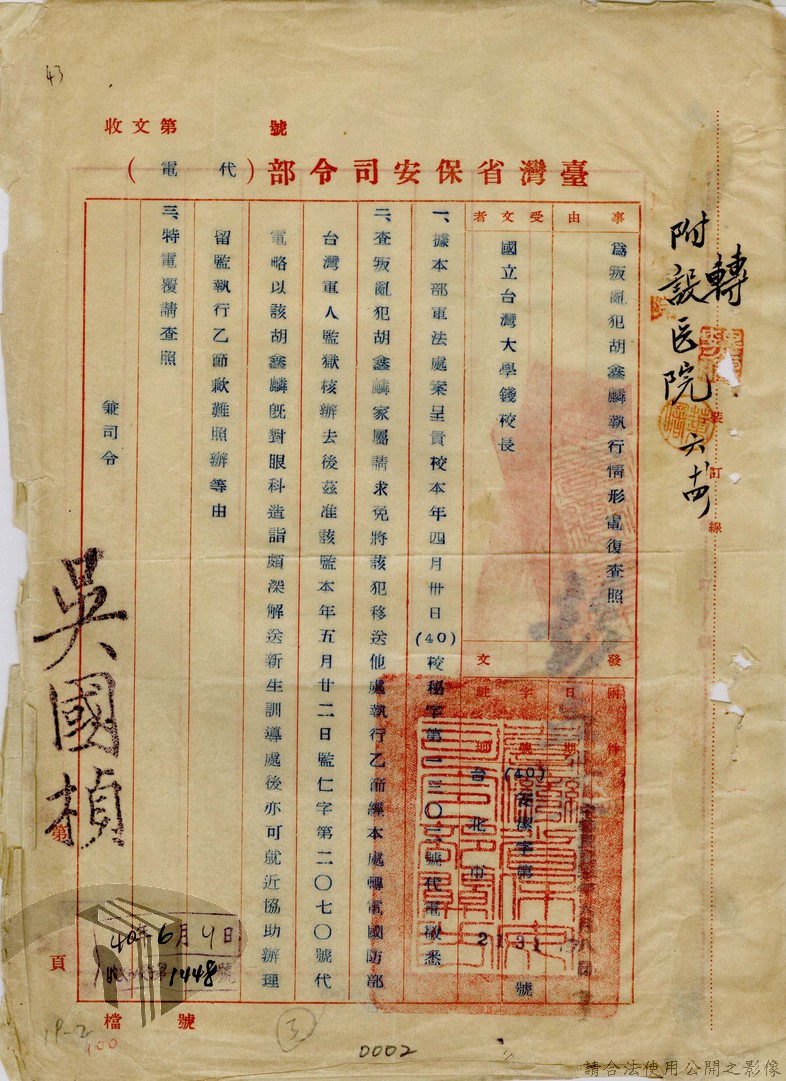 43
收文第　　　號
臺灣省保安司令部(代電)
轉
附設医院
六
裝訂線
事由
為叛亂犯胡鑫麟執行情形電復查照
受文者
國立台灣大學錢校長
發
文
附件
日期
字號
駐地
(40)安潔字第2131號
台北市
一、據本部軍法處案呈貴校本年四月卅日(40)校秘字第一三〇三號代電敬悉
二、查叛亂犯胡鑫麟家屬請求免將該犯移送他處執行乙節經本處轉電國防部
台灣軍人監獄核辦去後茲准該監本年五月廿二日監仁字第二〇七〇號代
電略以該胡鑫麟既對眼科造詣頗深解送新生訓導處後亦可就近協助辦理
留監執行乙節歉難照辦等由
三、特電覆請查照
兼司令
吳國楨
第　頁
40年6月11日
1448號
檔　　號
19-2
100
3
0002
請合法使用公開之影像